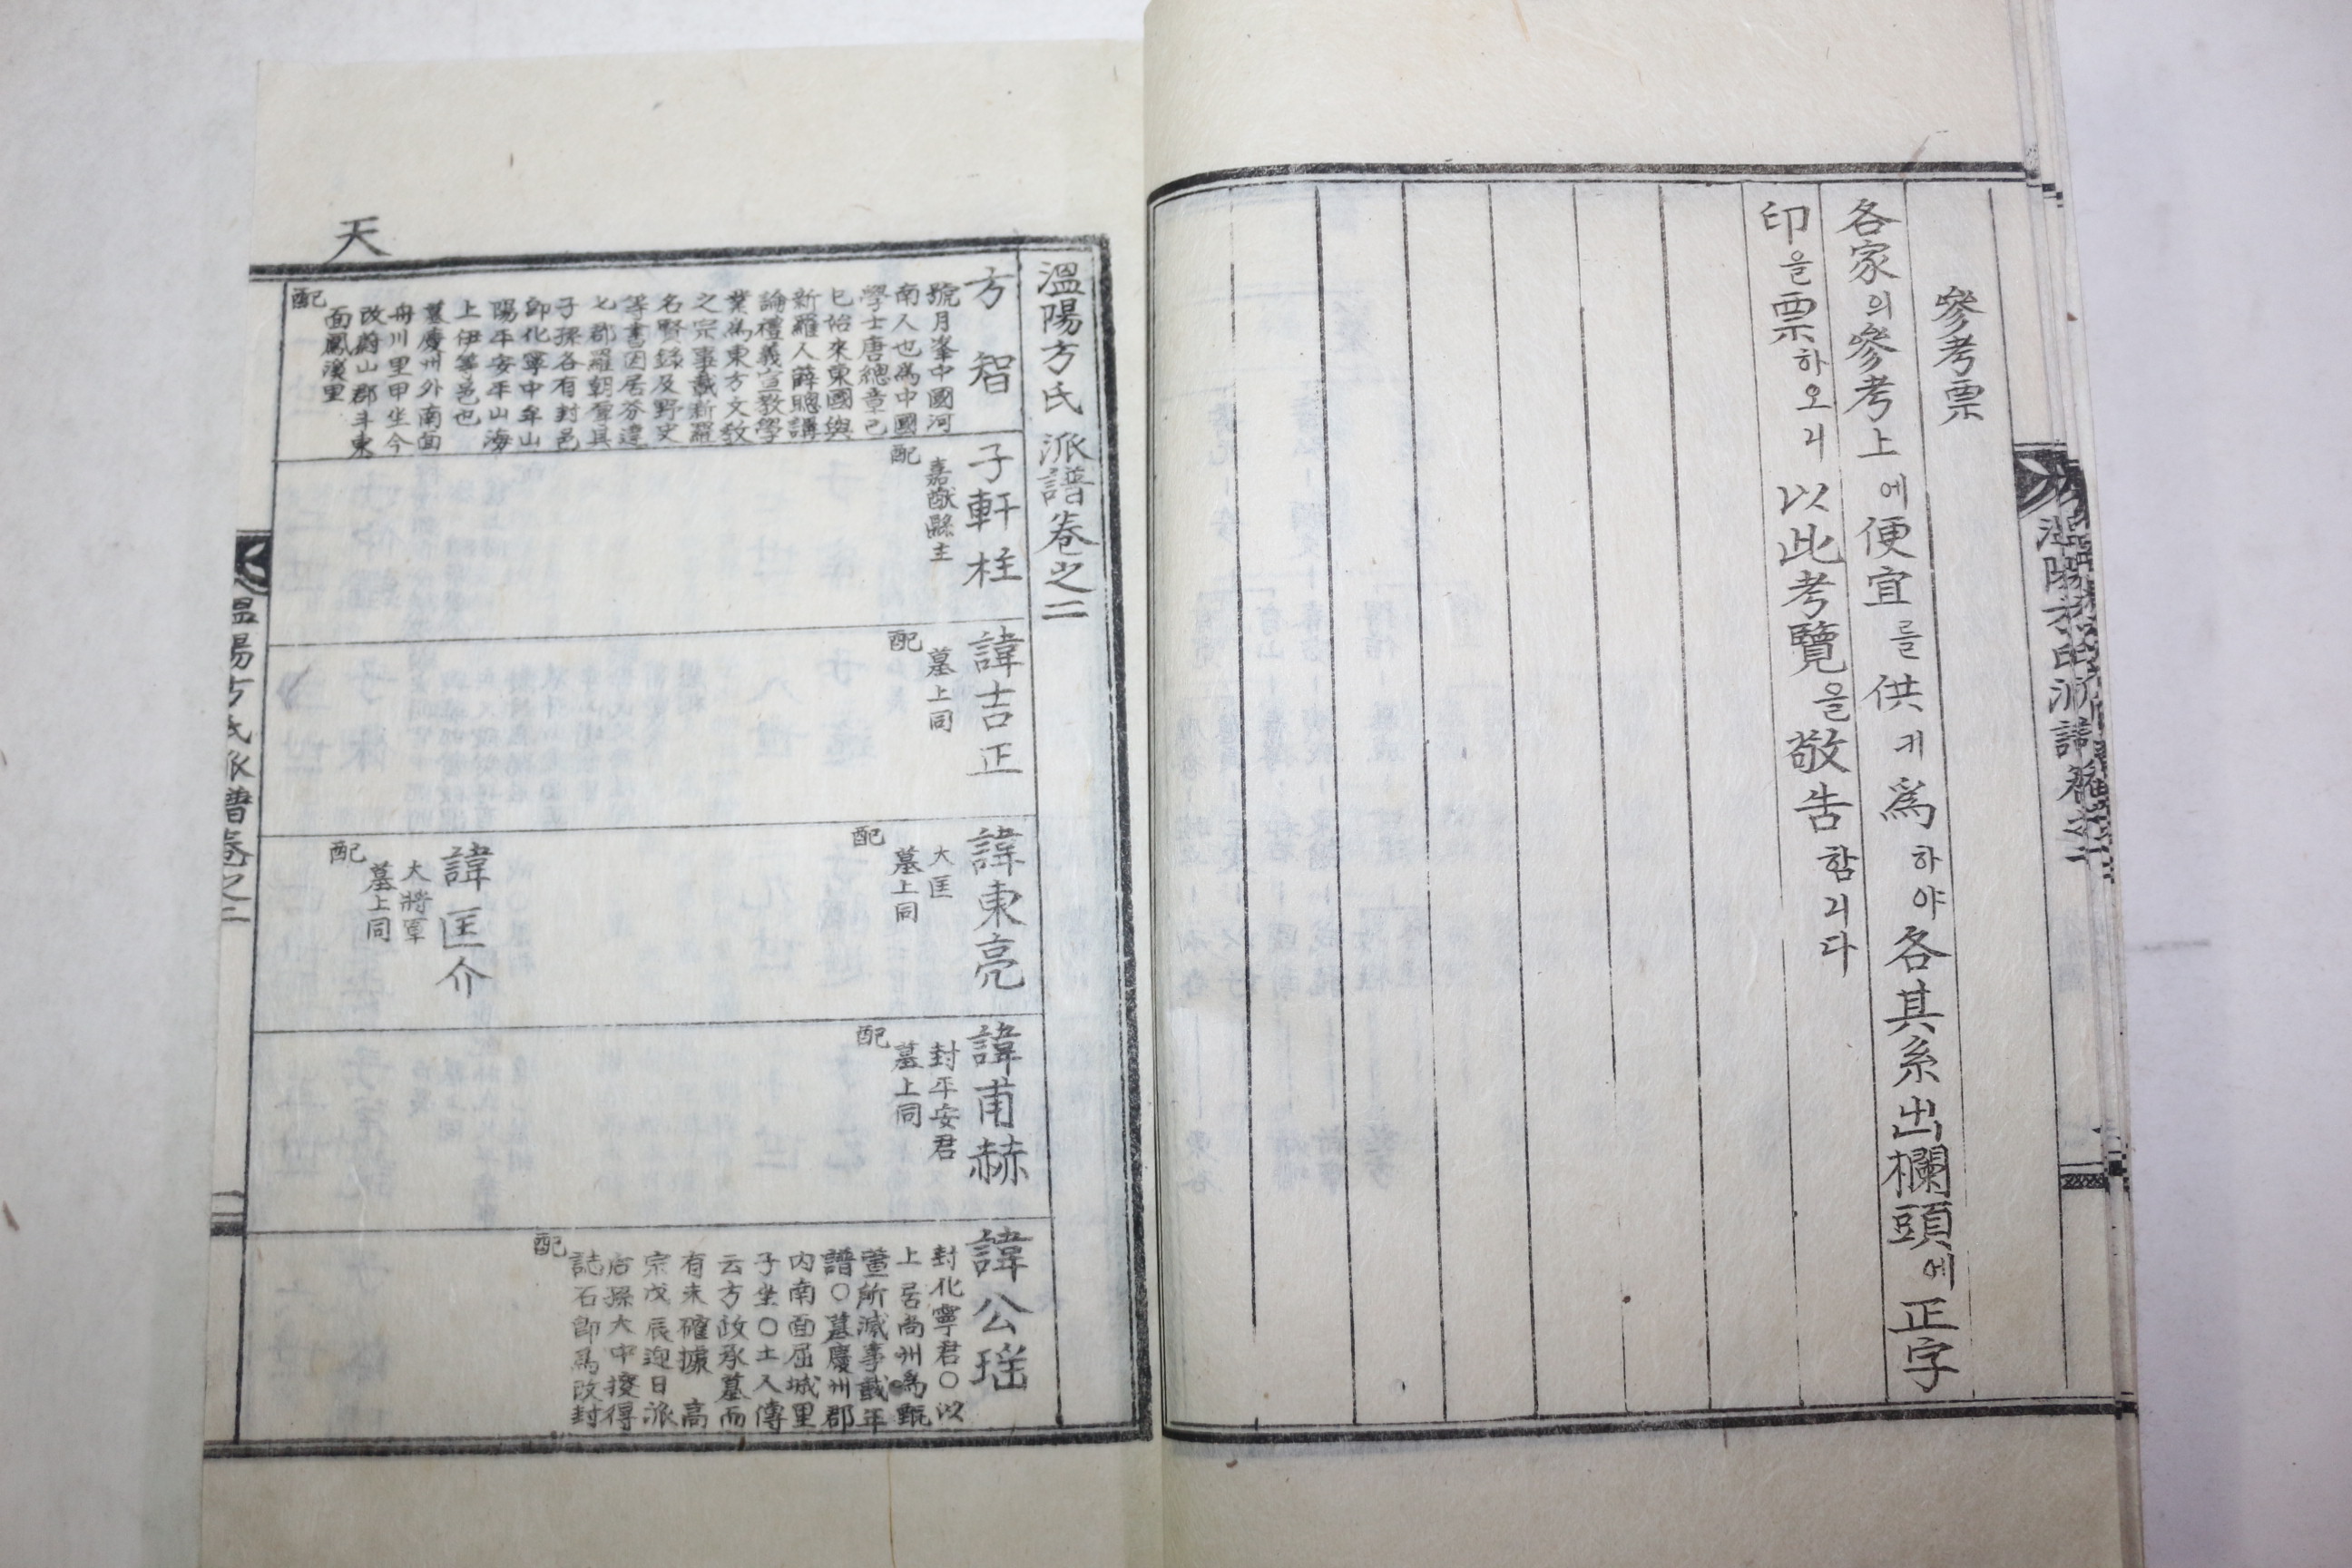 參考票
各家의參考上에便宜를供키爲하야各其系出欄頭에正字
印을票하오니以此考覽을敬告함니다
溫陽方氏派譜卷之二
天
方智
號月峯中國河
南人也爲中國
學士唐總章己
巳始來東國與
新羅人薛聰講
論禮義宣敎學
業爲東方文敎
之宗事載新羅
名賢錄及野史
等書因居芬違
七郡羅朝
子孫各有封邑
卽化寧中牟山
陽平安平山海
上伊等邑也
墓慶州外南面
舟川里甲坐今
改蔚山郡斗東
面鳳溪里
配
子軒柱
嘉猷縣主
配
諱吉正
墓上同
配
諱東亮
大匡
墓上同
配
諱匡介
大將軍
墓上同
配
諱甫赫
封平安君
墓上同
配
諱公瑶
封化寧君○以
上居尙州爲甄
萱所滅事載年
譜○墓慶州郡
內南面屈城里
子坐○土人傳
云方政承墓而
有未確據 高
宗戊辰迎日派
后孫大中搜得
誌石卽爲改封
配
溫陽方氏派譜卷之二